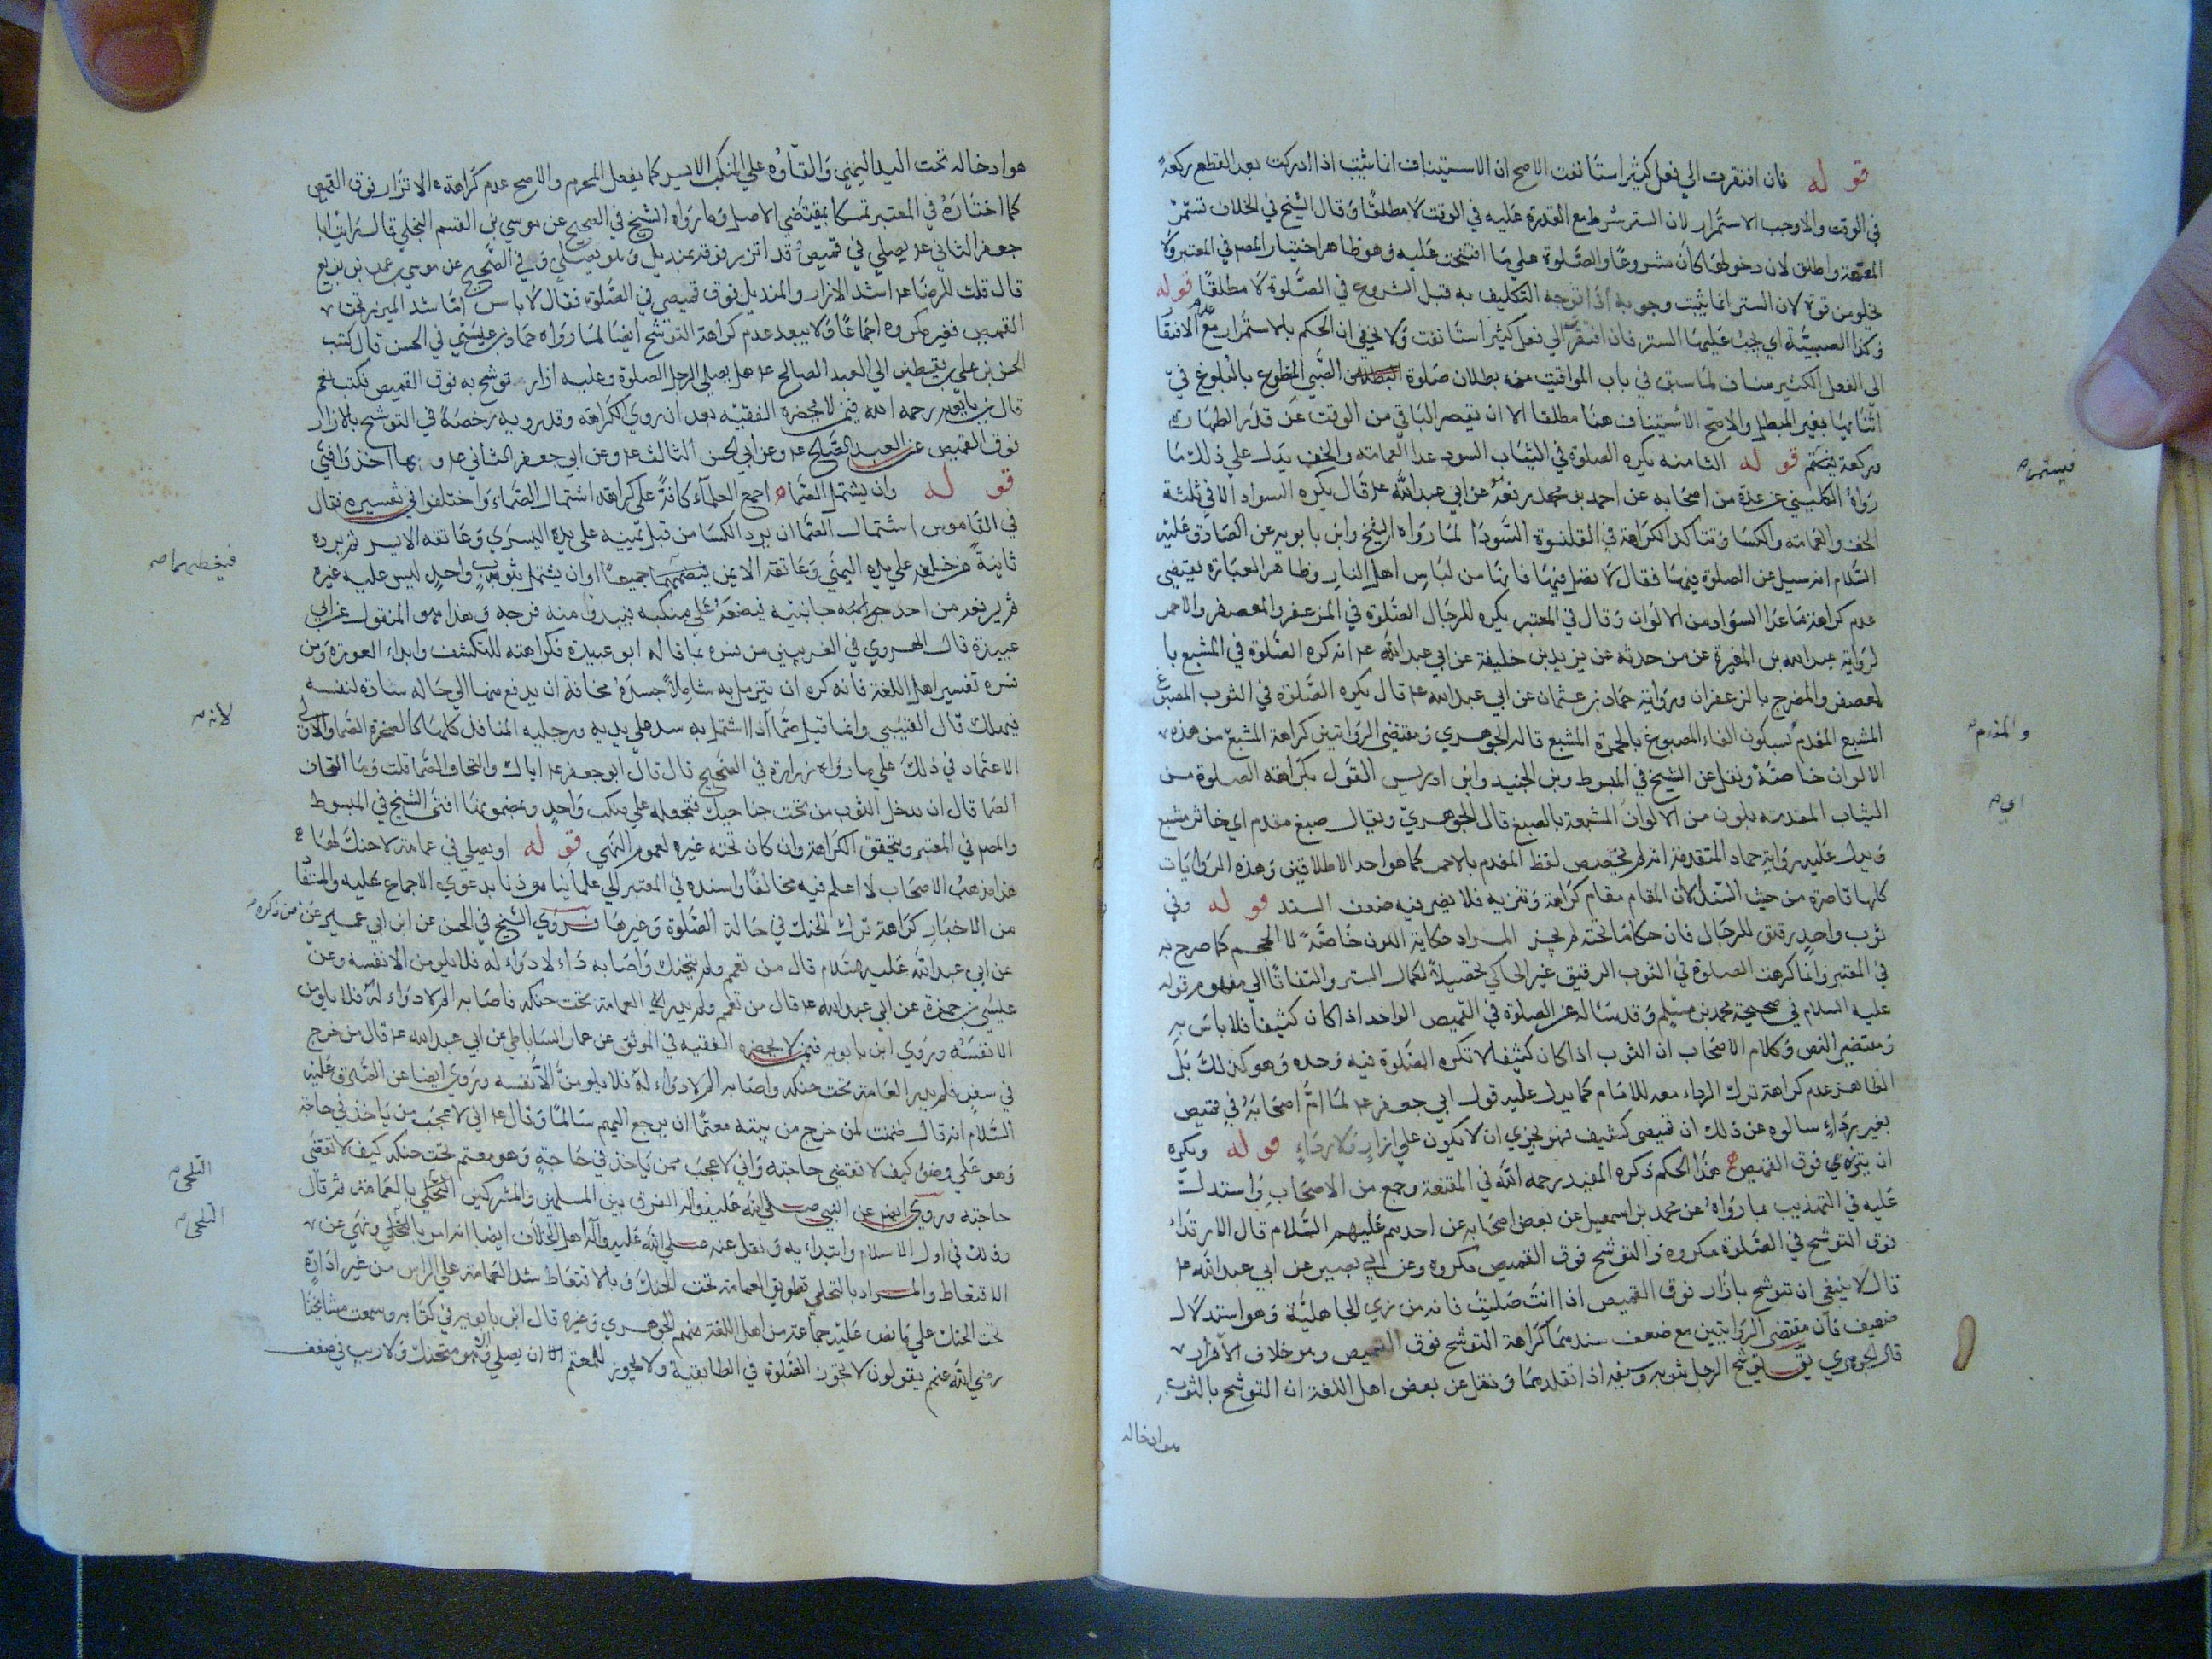 قوله فان افتقرت الي فعل كثير استانفت الاصح ان الاستيناف انما يثبت اذا ادركت بعد القطع ركعة
في الوقت والاوجب الاستمرار لان الستر شرط مع القدرة عليه في الوقت لا مطلقا وقال الشيخ في الخلاف تستمر
المعتقة واطلق لان دخولها كان مشروعا والصلوة علي ما افتتحت عليه وهو ظاهر اختيار المصر في المعتبر ولا
يخلو من قوة لان الستر انما يثبت وجوبه اذا توجه التكليف به قبل الشروع في الصلوة لا مطلقا قوله
وكذا الصبية اي يجب عليها الستر فان افتقر الي فعل كثير استانفت ولا يخفي ان الحكم بالاستمرار مع عدم الافتقا
الي الفعل الكثير مناف لما سبق في باب المواقيت من بطلان صلوة الصبي المتطوع بالبلوغ في
اثنائها بغير المبطل والاصح الاستيناف هنا مطلقا الا ان يقصر الباقي من الوقت عن قدر الطهارة
وركعة فيستمر قوله الثامنه يكره الصلوة في الثياب السود عدا العمامة والخف يدل علي ذلك ما
رواه الكليني عن عدة من اصحابه عن احمد بن محمد رفعه عن ابي عبد الله ع قال يكره السواد الا في ثلثة
الخف والعمامة والكسا وتتاكد الكراهة في القلنسوة السودا لما رواه الشيخ وابن بابويه عن الصادق عليه
السلام انه سيل عن الصلوة فيها فقال لا تصل فيها فانها من لباس اهل النار وظاهر العبارة يقتضي
عدم كراهة ما عدا السواد من الالوان وقال في المعتبر يكره للرجال الصلوة في المزعفر والمعصفر والاحمر
لرواية عبد الله بن المغيرة عن من حدثه عن يزيد بن خليفة عن ابي عبد الله ع انه كره الصلوة في المشبع با
لعصفر والمضرج بالزعفران ورواية حماد بن عثمان عن ابي عبد الله ع قال يكره الصلوة في الثوب المصبوغ
المشبع المفدم بسكون الفاء المصبوغ بالحمرة المشبع قاله الجوهري ومقتضي الروايتين كراهة المشبع من هذه
الالوان خاصة ونقل عن الشيخ في المبسوط وبن الجنيد وابن ادريس القول بكراهة الصلوة من
الثياب المفدمة بلون من الالوان المشبعة بالصبغ قال الجوهري ويقال صبغ مفدم اي خاثر مشبع
ويدل عليه رواية حماد المتقدمة ان لم نخصص لفظ المفدم بالاحمر كما هو احد الاطلاقين وهذه الروايات
كلها قاصرة من حيث السند لان المقام مقام كراهة وتنزيه فلا يضر فيه ضعف السند قوله وفي
ثوب واحد رقيق للرجال فان حكا ما تحته لم يجز المراد حكاية اللون خاصة لا الحجم كما صرح به
في المعتبر وانما كرهت الصلوة في الثوب الرقيق غير الحاكي تحصيلا لكمال الستر والتفاتا الي مفهوم قوله
عليه السلام في صحيحة محمد بن مسلم وقد ساله عن الصلوة في القميص الواحد اذا كان كثيفا فلا باس به
ومقتضي النص وكلام الاصحاب ان الثوب اذا كان كثيفا لا تكره الصلوة فيه وحده وهو كذلك بل
الظاهر عدم كراهة ترك الرداء معه للامام كما يدل عليه قول ابي جعفر ع لما ام اصحابه في قميص
بغير رداء سالوه عن ذلك ان قميصي كثيف فهو يجزي ان لا يكون علي ازار ولا رداء قوله ويكره
ان يتزر فوق القميص هذا الحكم ذكره المفيد رحمه الله في المقنعة وجمع من الاصحاب واستدل
عليه في التهذيب بما رواه عن محمد بن اسمعيل عن بعض اصحابه عن احدهم عليهم السلام قال الارتداء
فوق التوشح في الصلوة مكروه والتوشح فوق القميص مكروه وعن ابي بصير عن ابي عبد الله ع
قال لا ينبغي ان تتوشح بازار فوق القميص اذا انت صليت فانه من زي الجاهلية وهو استدلال
ضعيف فان مقتضي الروايتين مع ضعف سندهما كراهة التوشح فوق القميص وهو خلاف الاتزار
قال الجوهري يق توشح الرجل بثوبه وسيفه اذا تقلد بهما ونقل عن بعض اهل اللغة ان التوشح بالثوب
هو ادخاله
فيستمر
والمفدم
اي
هو ادخاله تحت اليد اليمني والقاوه علي المنكب الايسر كما يفعل المحرم والاصح عدم كراهة الاتزار فوق القميص
كما اختاره في المعتبر تمسكا بمقتضي الاصل وما رواه الشيخ في الصحيح عن موسي بن القسم البجلي قال رايت ابا
جعفر الثاني ع يصلي في قميص قد اتزر فوقه بمنديل وهو يصلي وفي الصحيح عن موسي بن عمر بن بزيع
قال قلت للرضا ع اشد الازار والمنديل فوق قميصي في الصلوة فقال لا باس اما شد الميزر تحت
القميص فغير مكروه اجماعا ولا يبعد عدم كراهة التوشح ايضا لما رواه حماد بن عيسي في الحسن قال كتب
الحسن بن علي بن يقطين الي العبد الصالح ع هل يصلي الرجل الصلوة وعليه ازار توشح به فوق القميص فكتب نعم
قال بن بابويه رحمه الله فيمن لا يحضره الفقيه بعد ان روي الكراهة وقد رويه رخصة في التوشح بالازار
فوق القميص عن العبد الصالح ع وعن ابي الحسن الثالث ع وعن ابي جعفر الثاني ع وبها اخذ وافتي
قوله وان يشتمل الصماء اجمع العلماء كافة علي كراهة اشتمال الصماء واختلفوا في تفسيره فقال
في القاموس اشتمال الصما ان يرد الكسا من قبل يمينه علي يده اليسري وعاتقه الايسر ثم يرده
ثانية من خلفه علي يده اليمني وعاتقه الايمن فيغطيهما جميعا او ان يشتمل بثوب واحد ليس عليه غيره
ثم يرفعه من احد جانبيه فيضعه علي منكبه فيبدوا منه فرجه وهذا هو المنقول عن ابي
عبيدة قال الهروي في الغريبين من فسره بما قاله ابو عبيدة فكراهته للتكشف وابداء العورة ومن
فسره تفسير اهل اللغة فانه كره ان يتزمل به شاملا جسده مخافة ان يدفع منها الي حالة سادة لنفسه
فيهلك قال القتيبي وانما قيل صما اذا اشتمل به سد علي يديه ورجليه المنافذ كلها كالصخرة الصما والاولي
الاعتماد في ذلك علي ما رواه زرارة في الصحيح قال قال ابو جعفر ع اياك والتحاف الصما قلت وما التحاف
الصما قال ان تدخل الثوب من تحت جناحيك فتجعله علي منكب واحد وبمضمونها افتي الشيخ في المبسوط
والمصر في المعتبر ويتحقق الكراهة وان كان تحته غيره لعموم النهي قوله او يصلي في عمامة لا حنك لها
هذا مذهب الاصحاب لا اعلم فيه مخالفا واسنده في المعتبر الي علمائنا موذنا بدعوي الاجماع عليه والمستفا
من الاخبار كراهة ترك الحنك في حالة الصلوة وغيرها فروي الشيخ في الحسن عن ابن ابي عمير عن من ذكره
عن ابي عبد الله عليه السلام قال من تعمم ولم يتحنك واصابه داء لا دواء له فلا يلومن الا نفسه وعن
عيسي بن حمزة عن ابي عبد الله ع قال من تعمم ولم يدير العمامة تحت حنكه فاصابه الم لا دواء له فلا يلومن
الا نفسه وروي ابن بابويه فيمن لا يحضره الفقيه في الموثق عن عمار الساباطي عن ابي عبد الله ع قال من خرج
في سفر فلم يدير العمامة تحت حنكه واصابه الم لا دواء له فلا يلومن الا نفسه وروي ايضا عن الصادق عليه
السلام انه قال ضمنت لمن خرج من بيته معتما ان يرجع اليهم سالما وقال ع اني لاعجب من ياخذ في حاجة
وهو علي وضوء كيف لا تقضي حاجته واني لاعجب ممن ياخذ في حاجة وهو معتم تحت حنكه كيف لا تقضي
حاجته وروي ايضا عن النبي صلي الله عليه واله الفرق بين المسلمين والمشركين التلحي بالعمامة ثم قال
وذلك في اول الاسلام وابتداءه ونقل عنه صلي الله عليه وآله اهل الخلاف ايضا انه امر بالتلحي ونهي عن
الاقتعاط والمراد بالتلحي تطويق العمامة تحت الحنك وبالاقتعاط شد العمامة علي الراس من غير ادارة
تحت الحنك علي ما نص عليه جماعة من اهل اللغة منهم الجوهري وغيره قال ابن بابويه في كتابه وسمعت مشايخنا
رضي الله عنهم يقولون لا تجوز الصلوة في الطابقية ولا يجوز للمعتم ان يصلي الا وهو متحنك ولا ريب في ضعف
فيغطيهما
لانه
التلحي
التلحي